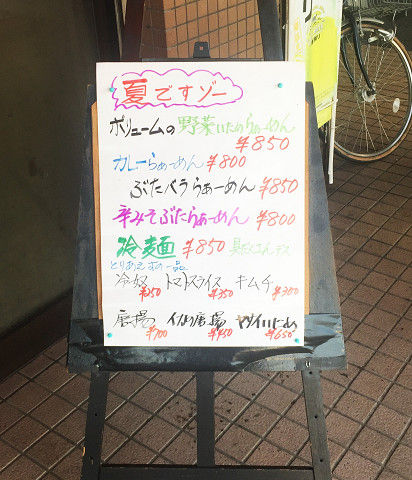 夏ですゾー
ボリュームの野菜いためらぁーめん
¥850
カレーらぁーめん ¥800
ぶたバラらぁーめん ¥850
辛みそぶたらぁーめん ¥800
冷麺 ¥850 具だくさんデス
とりあえずの一品
冷奴 トマトスライス キムチ
¥350 ¥300
唐揚 イカの唐揚 ヤサイいため
¥700 ¥450 ¥650